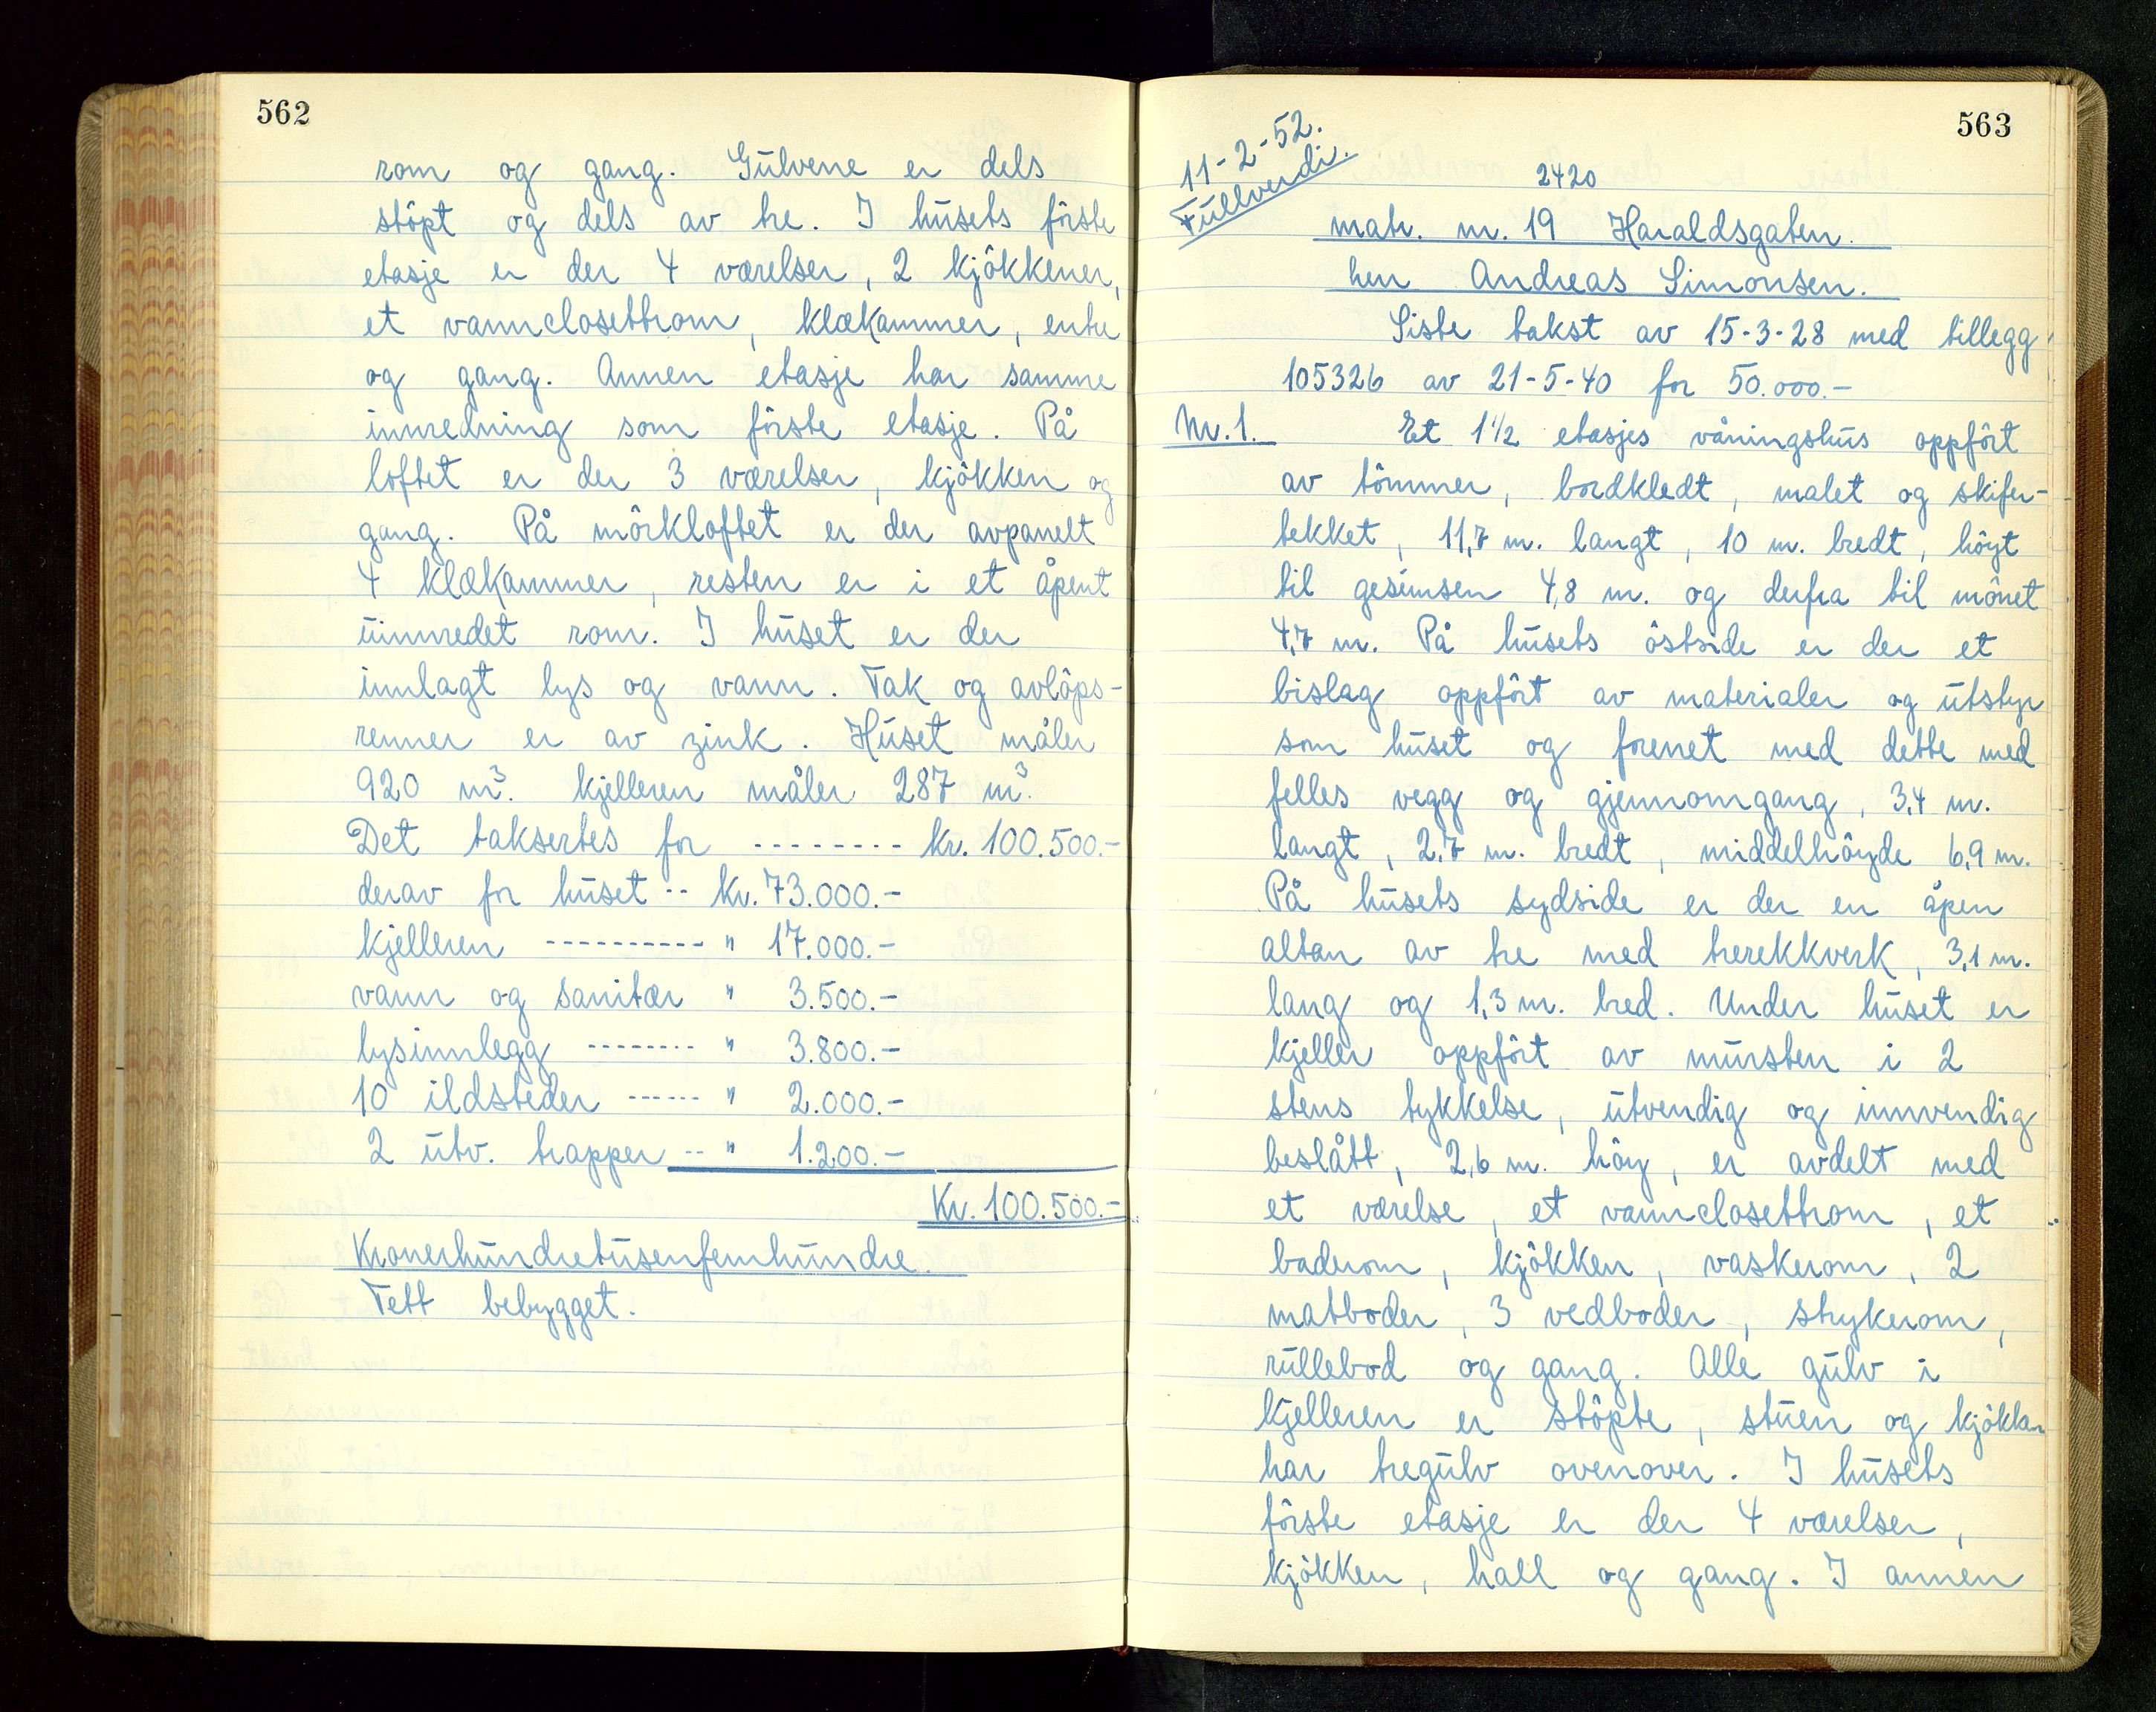 562
rom og gang. Gulvene er dels
støpt og dels av tre. I husets første
etasje er der 4 værelser, 2 kjøkkener,
et vannclosettrom, klækammer, entre
og gang. Annen etasje har samme
innredning som første etasje. På
loftet er der 3 værelser, kjøkken og
gang. På mørkloftet er der avpanelt
4 klækammer, resten er i et åpent
uinnredet rom. I huset er der
innlagt lys og vann. Tak og avløps-
renner er av zink. Huset måler
920 m³. Kjelleren måler 287 m³.
Det taksertes for --------- kr. 100.500.-
derav for huset -- kr. 73.000.-
kjelleren ----------- " 17.000.-
vann og sanitær " 3.500.-
lysinnlegg -------- " 3.800.-
10 ildsteder ------ " 2.000.-
2 utv. trapper -- " 1.200.-
Kr. 100.500.-
Kronerhundretusenfemhundre.
Tett bebygget.
563
11-2-52.
Fullverdi.
2420
matr. nr. 19 Haraldsgaten.
herr Andreas Simonsen.
Siste takst av 15-3-28 med tillegg
105326 av 21-5-40 for 50.000.-
Nr. 1. Et 1½ etasjes våningshus oppført
av tømmer, bordkledt, malet og skifer-
tekket, 11,7 m. langt, 10 m. bredt, høyt
til gesimsen 4,8 m. og derfra til mønet
4,7 m. På husets østside er der et
bislag oppført av materialer og utstyr
som huset og forenet med dette med
felles vegg og gjennomgang, 3,4 m.
langt, 2,7 m. bredt, middelhøyde 6,9 m.
På husets sydside er der en åpen
altan av tre med trerekkverk, 3,1 m.
lang og 1,3 m. bred. Under huset er
kjeller oppført av mursten i 2
stens tykkelse, utvendig og innvendig
beslått, 2,6 m. høy, er avdelt med
et værelse, et vannclosettrom, et
baderom, kjøkken, vaskerom, 2
matboder, 3 vedboder, strykerom,
rullebod og gang. Alle gulv i
kjelleren er støpte, stuen og kjøkken
har tregulv ovenover. I husets
første etasje er der 4 værelser,
kjøkken, hall og gang. I annen